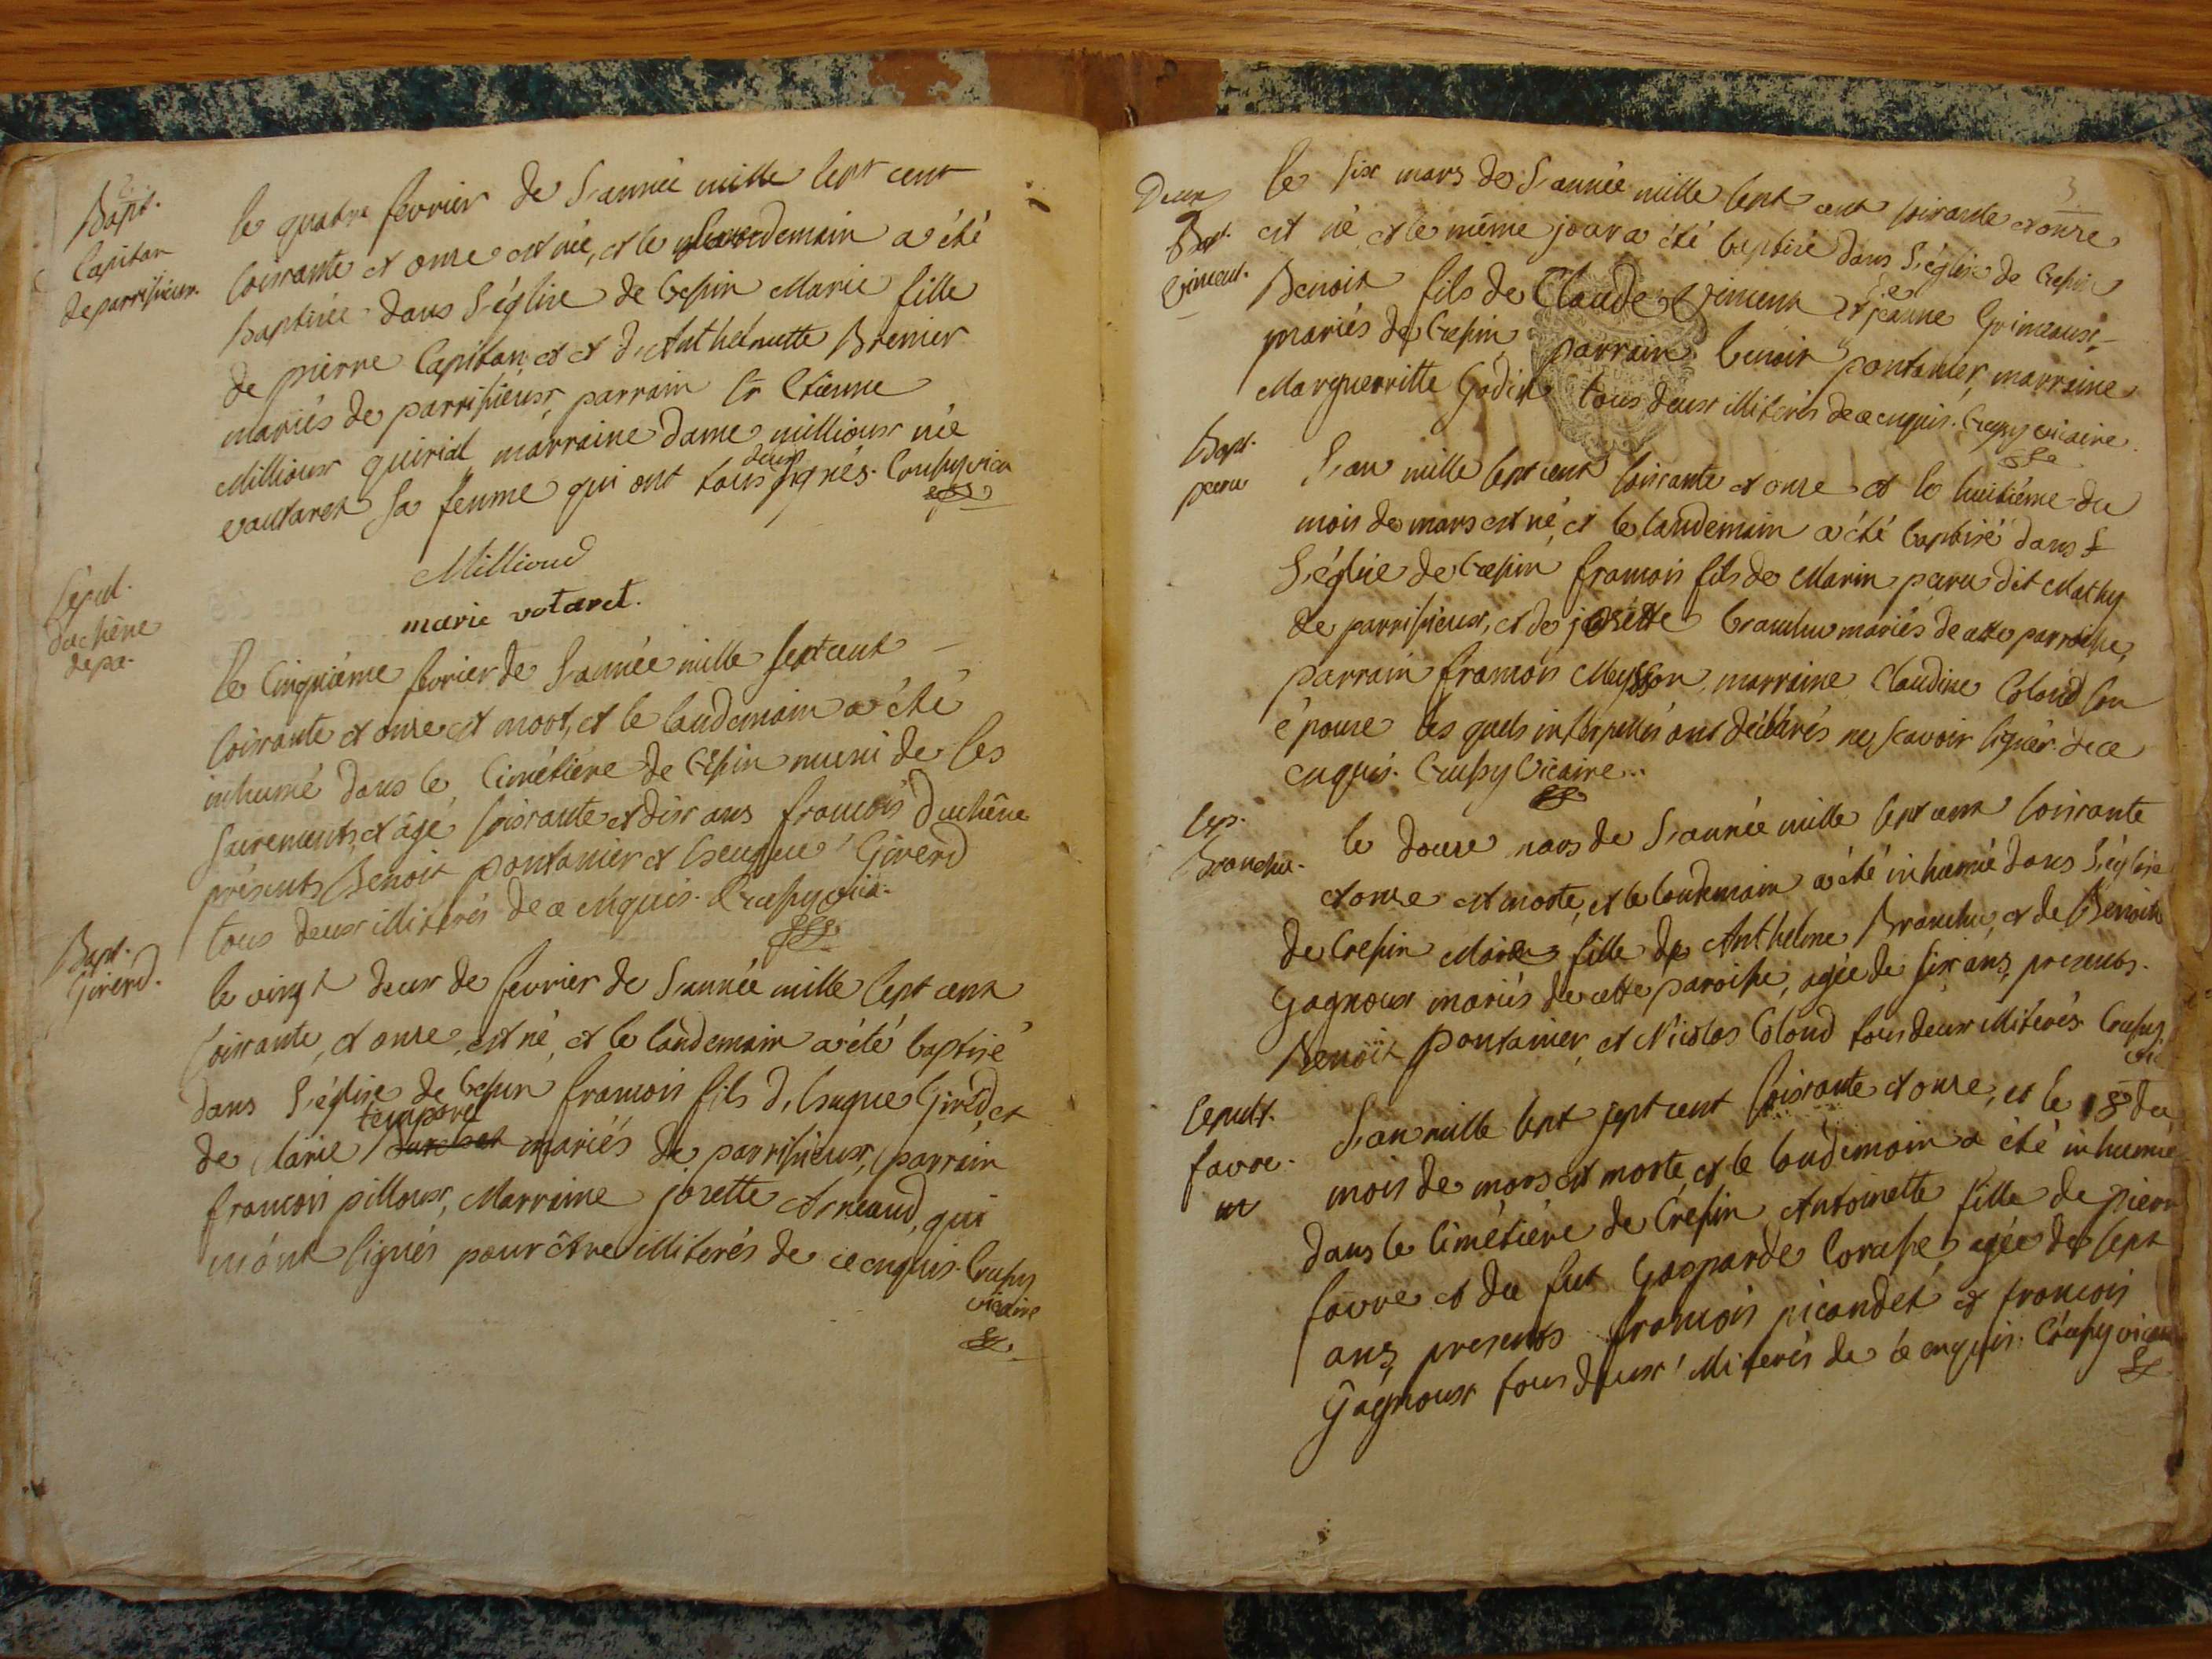 Bapt.
Capitan
de parrisieux.
le quatre fevrier de l'année mille sept cent
soixante et onze est née, et le landemain a été
baptisée dans l'église de Crepin Marie fille
de pierre Capitan et et d'Anthelmette Brenier
mariés de parrisieux, parrain Sr Etienne
Millioux quirial marraine dame millioux née
vautaret sa femme qui ont tous deux signés. Crussy vica
Millioud
marie votaret.
sepul.
duchêne
de pa.
le Cinquième fevrier de l'année mille septcent
soixante et onze est mort, et le landemain a été
inhumé dans le Cimétière de Crepin muni de ses
sacrements, et agé soixante et dix ans francois duchêne
présents Benoit pontanier et hugue Girerd
tous deux illiterés de ce enquis. Crussy vic.
Bapt.
Girerd.
le vingt deux de fevrier de l'année mille sept cent
soixante, et onze, est né, et le landemain a été baptisé
dans l'église de Crepin francois fils d'hugue Girerd, et
de Marie temporel mariés de parrisieux, parrain
francois pilloux, Marraine josette Arneaud, qui
n'ont signés pour être illiterés de ce enquis. Crussy
vicaire
3
Deux
Bapt.
Vincent.
le six mars de l'année mille sept cent soixante et onze
est né, et le même jour a été baptisé dans l'église de Crepin
Benoit fils de Claude Vincent et de jeanne Grimeaux,
mariés de Crepin parrain benoit pontanier, marraine
Marguerritte Godet tous deux illiterés de ce enquis. Crussy vicaire.
Bapt.
paru
L'an mille sept cent soixante et onze et le huitiéme du
mois de mars est né, et le landemain a été baptisé dans l
l'église de Crepin francois fils de Marin paru dit Mathy
de parrisieux, et de josette branchu mariés de cette parroisse,
parrain francois Meysson, marraine Claudine Coloud son
épouse les quels interpellés ont déclarés ne scavoir signer de ce
enquis. Crussy Vicaire.
sep.
Branchu.
le douze mars de l'année mille sept cent soixante
et onze est morte, et le landemain a été inhumée dans l'église
de Crepin Marie fille de Anthelme Branchu, et de Benoite
Gagnoux mariés de cette paroisse, agée de six ans, presents.
Benoit pontanier, et Nicolas Coloud tous deux illiterés Crussy
vic
sepult.
favre.
L'an mille sept sept cent soixante et onze, et le 18 du
mois de mars est morte, et le landemain a été inhumée
dans le Cimétière de Crepin Antoinette fille de pierre
favre et du fut Gasparde Corasse, agée de sept
ans, presents francois picandet et francois
Gagnoux tous deux illiterés de ce enquis. Crussy vicaire